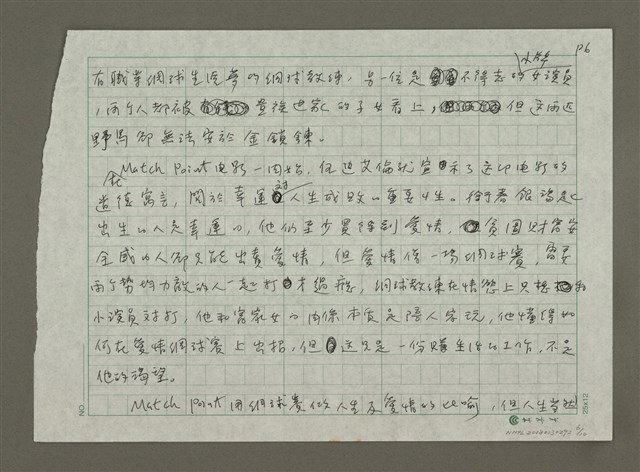 P6
有職業網球生涯夢的網球教練，另一位是不得志的小牌女演員
，兩個人都被豪徒世家的子女看上，但這兩匹
野馬卻無法安於金鎖鍊。
在Match Point電影一開始，伍迪艾倫就宣示了這部電影的
道德寓言，關於幸運對人生成敗的重要性。銜著銀湯匙
出生的人是幸運的，他們至少買得到愛情，貧困財富安
全感的人卻只能出賣愛情，但愛情像一場網球賽，需要
兩個勢均力敵的人一起打才過癮，網球教練在情慾上只想和
小演員對打，他和富家女的關係本質是陪人客玩，他懂得如
何在愛情網球賽上出招，但這只是一份賺生活的工作，不是
他的渴望。
Match Point用網球賽做人生及愛情的比喻，但人生當然
NO.
25x12